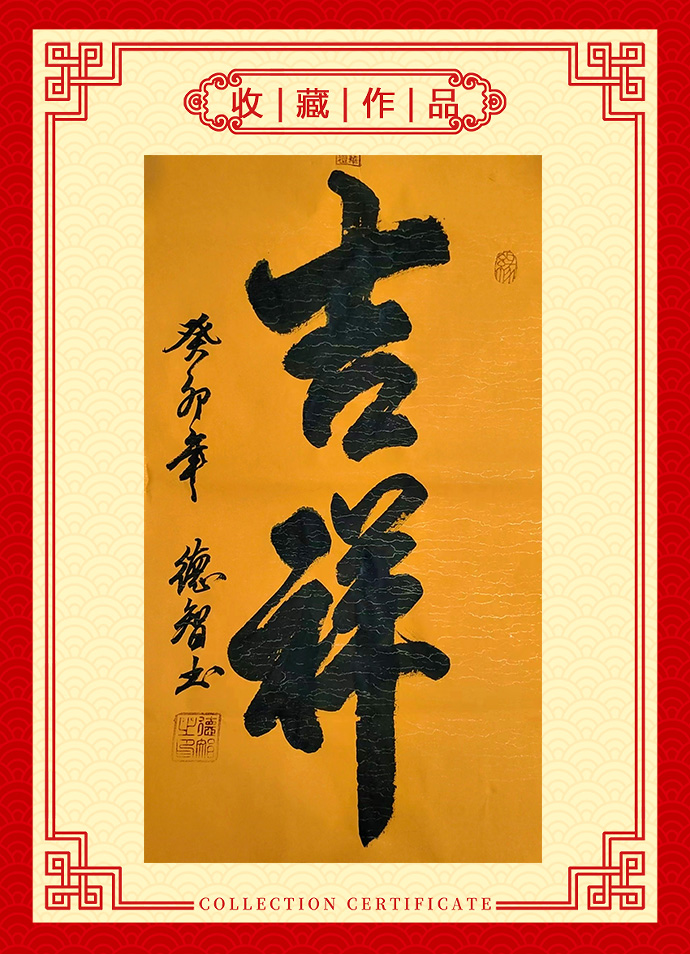 收|藏|作|品
吉祥
癸卯年 德智书
COLLECTION CERTIFICATE